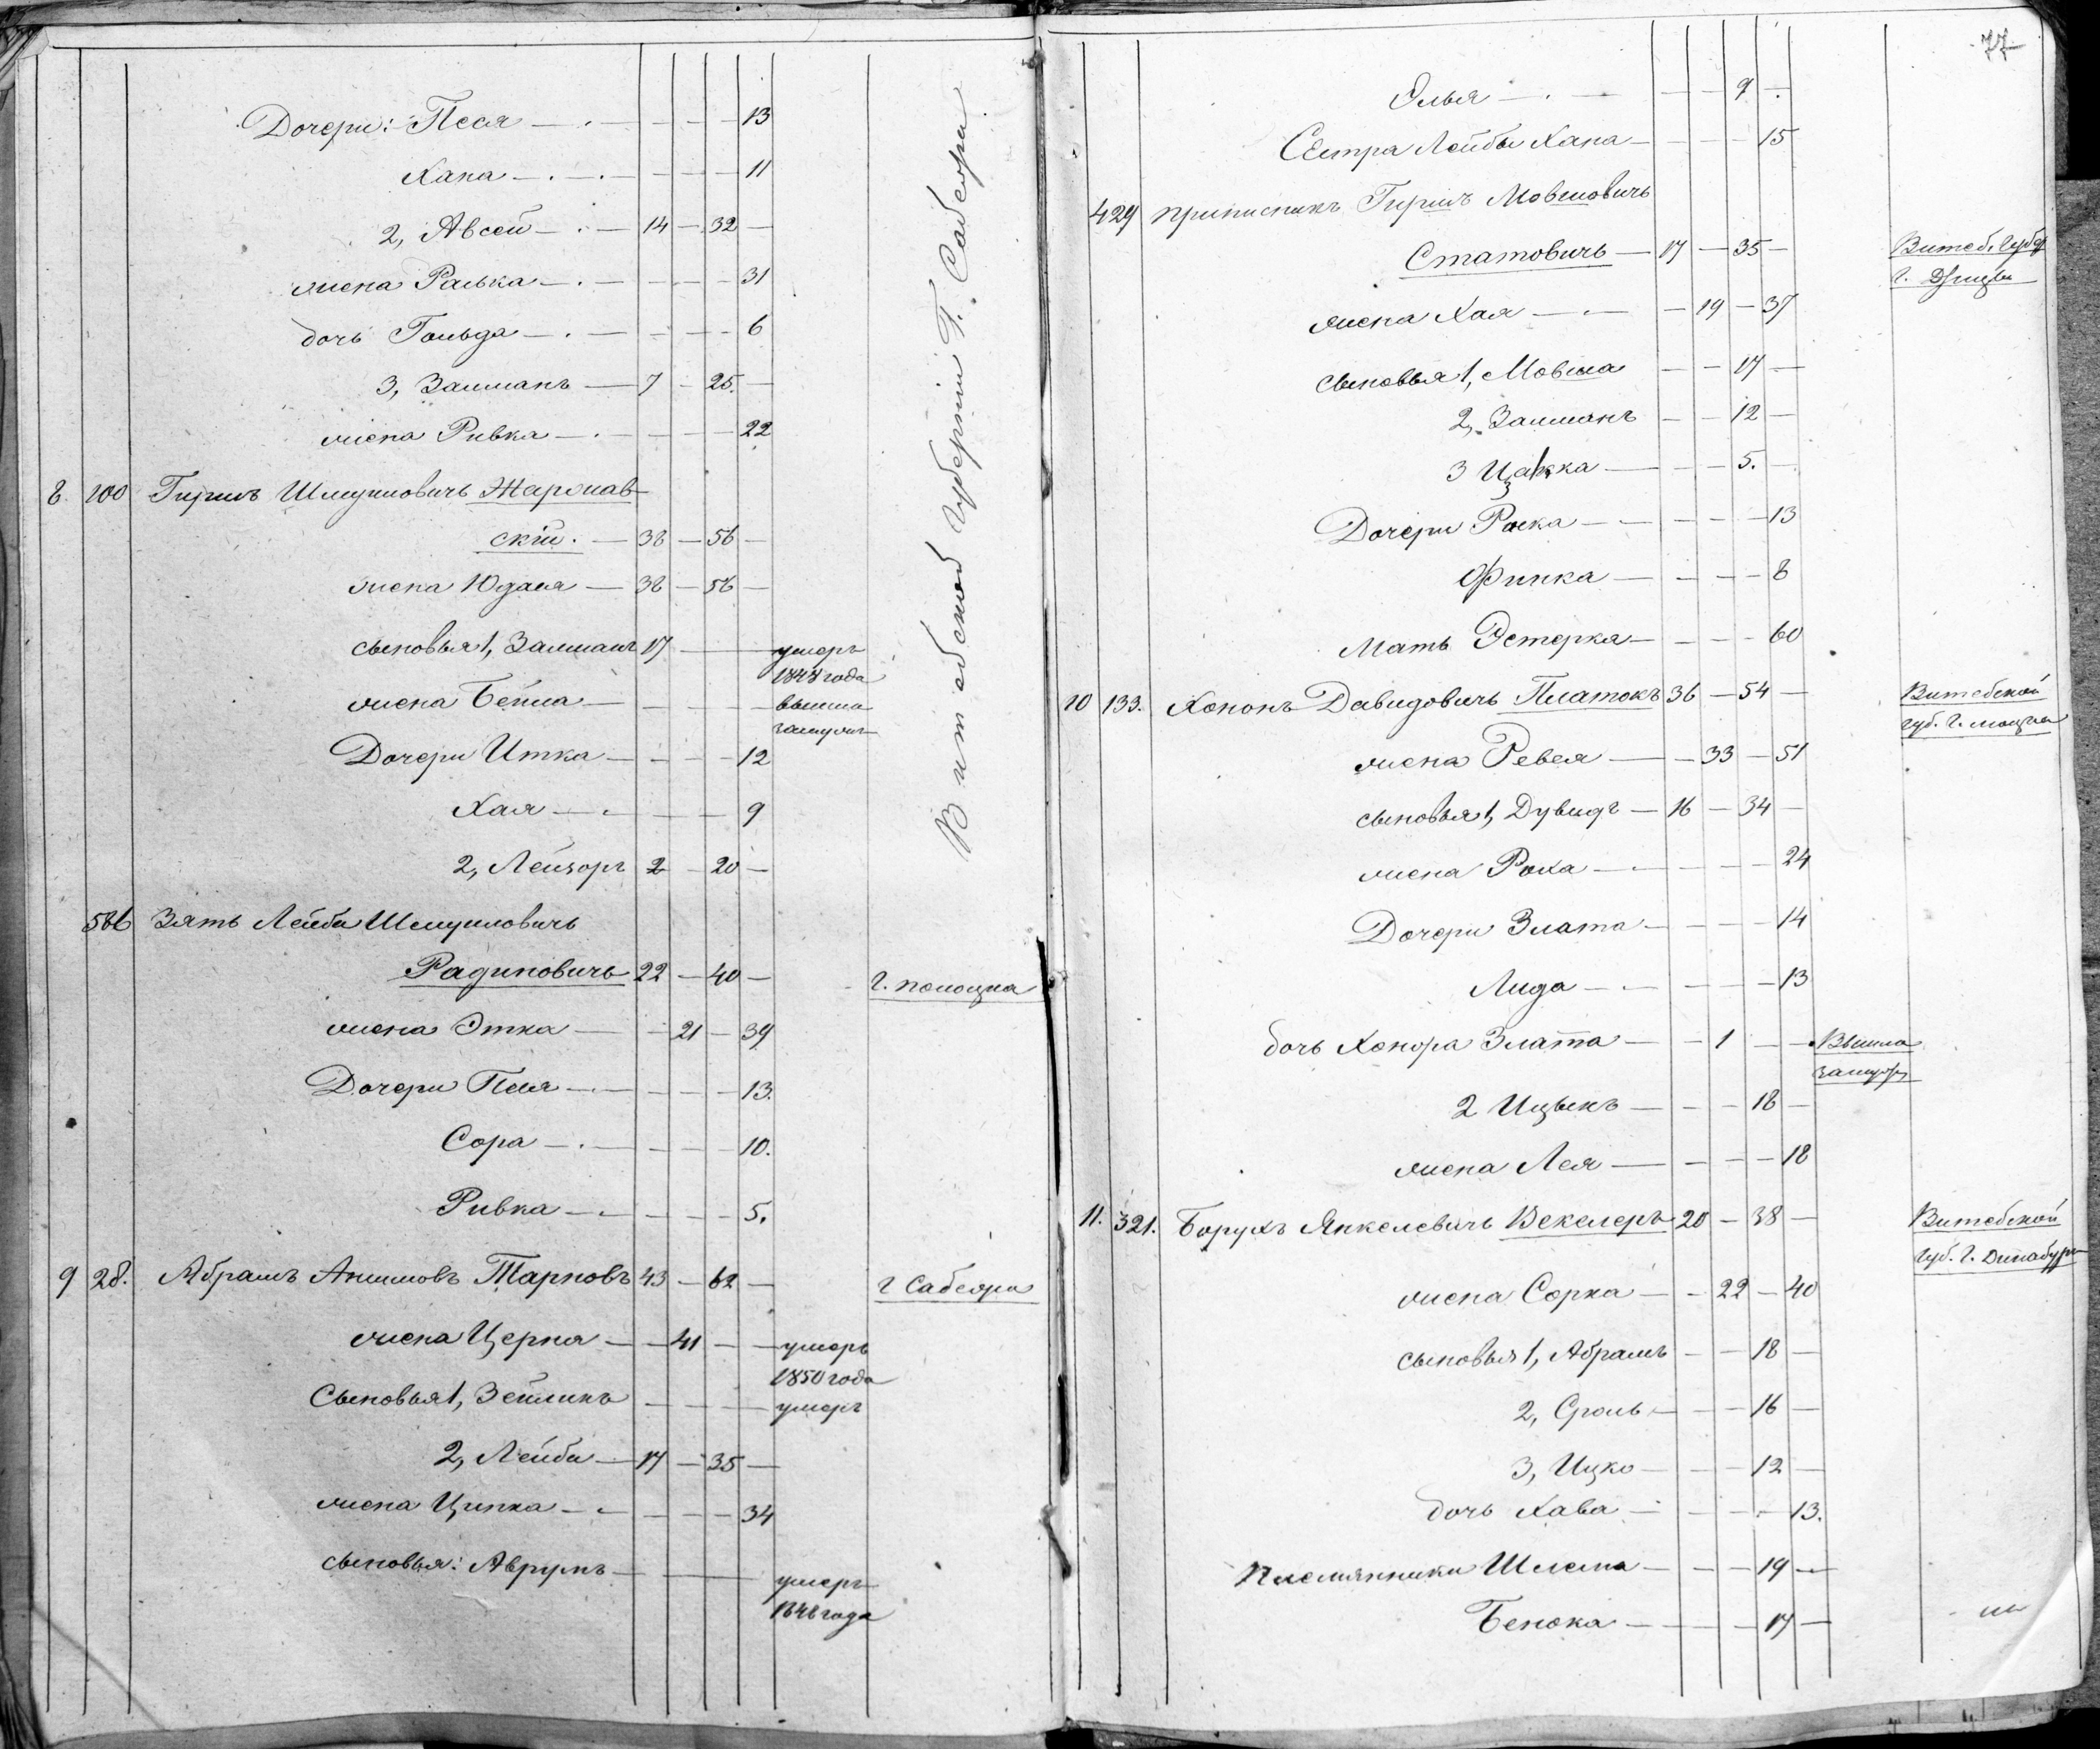 Дочери: Песя — 13
Хана — 11
2, Авсей — 14 — 32 —
жена Ралька — 31
дочь Гольда — 6
3, Залманъ — 7 — 25. —
жена Ривка — 22
8. 100 Гиршъ Шмуиловичъ
скій. — 38 — 56 —
жена Юдася — 38 — 56 —
сыновья 1, Залманъ 17 — умеръ
1848 года
жена Бейла — вышла
замужъ
Дочери Итка — 12
Хая — 9
2, Лейзоръ 2 — 20 —
586 Зять Лейба Шмуиловичъ
Радиновичъ 22 — 40 — г. полоцка
жена Этка — 21 — 39
Дочери Песя — 13.
Сора — 10.
Ривка — 5.
9 28. Абрамъ Акимовъ Тарновъ 43 — 62 —
жена Церня — 41 — умерь
1850 года
Сыновья 1, Зейликъ — умеръ
2, Лейба — 17 — 35 —
жена Ципка — 34
сыновья: Аврумъ — умеръ
1848 года
Витебской Губерніи Г.
77
Элья — 9 —
Сестра Лейбы Хана — 15
429 приписникъ Гиршъ Мовшовичъ
Статовичъ — 17 — 35 — Витеб. Губер
г. Дризы
жена Хая — 19 — 37
сыновья 1, Мовша — 17 —
2, Залманъ — 12 —
3 — 5. —
Дочери Раска — 13
Финка — 8
Мать Эстерка — 60
10 133. Хононъ Давидовичъ Платокъ 36 — 54 — Витебской
губ. г.
жена Ревея — 33 — 51
сыновья 1, Дувидъ — 16 — 34 —
жена Роха — 24
Дочери Злата — 14
Лида — 13
дочь Хонона Злата — 1 — Вышла
замужъ
2 Ицыкъ — 18 —
жена Лея — 18
11. 321. Борухъ Янкелевичъ Векелеръ 20 — 38 — Витебской
губ. г. Динабург
жена Сорка — 22 — 40
сыновья 1, Абрамъ — 18 —
2, Сроль — 16 —
3, Ицко — 12 —
дочь Хава — 13.
Племянники Шлема — 19 —
Бенока — 17 —